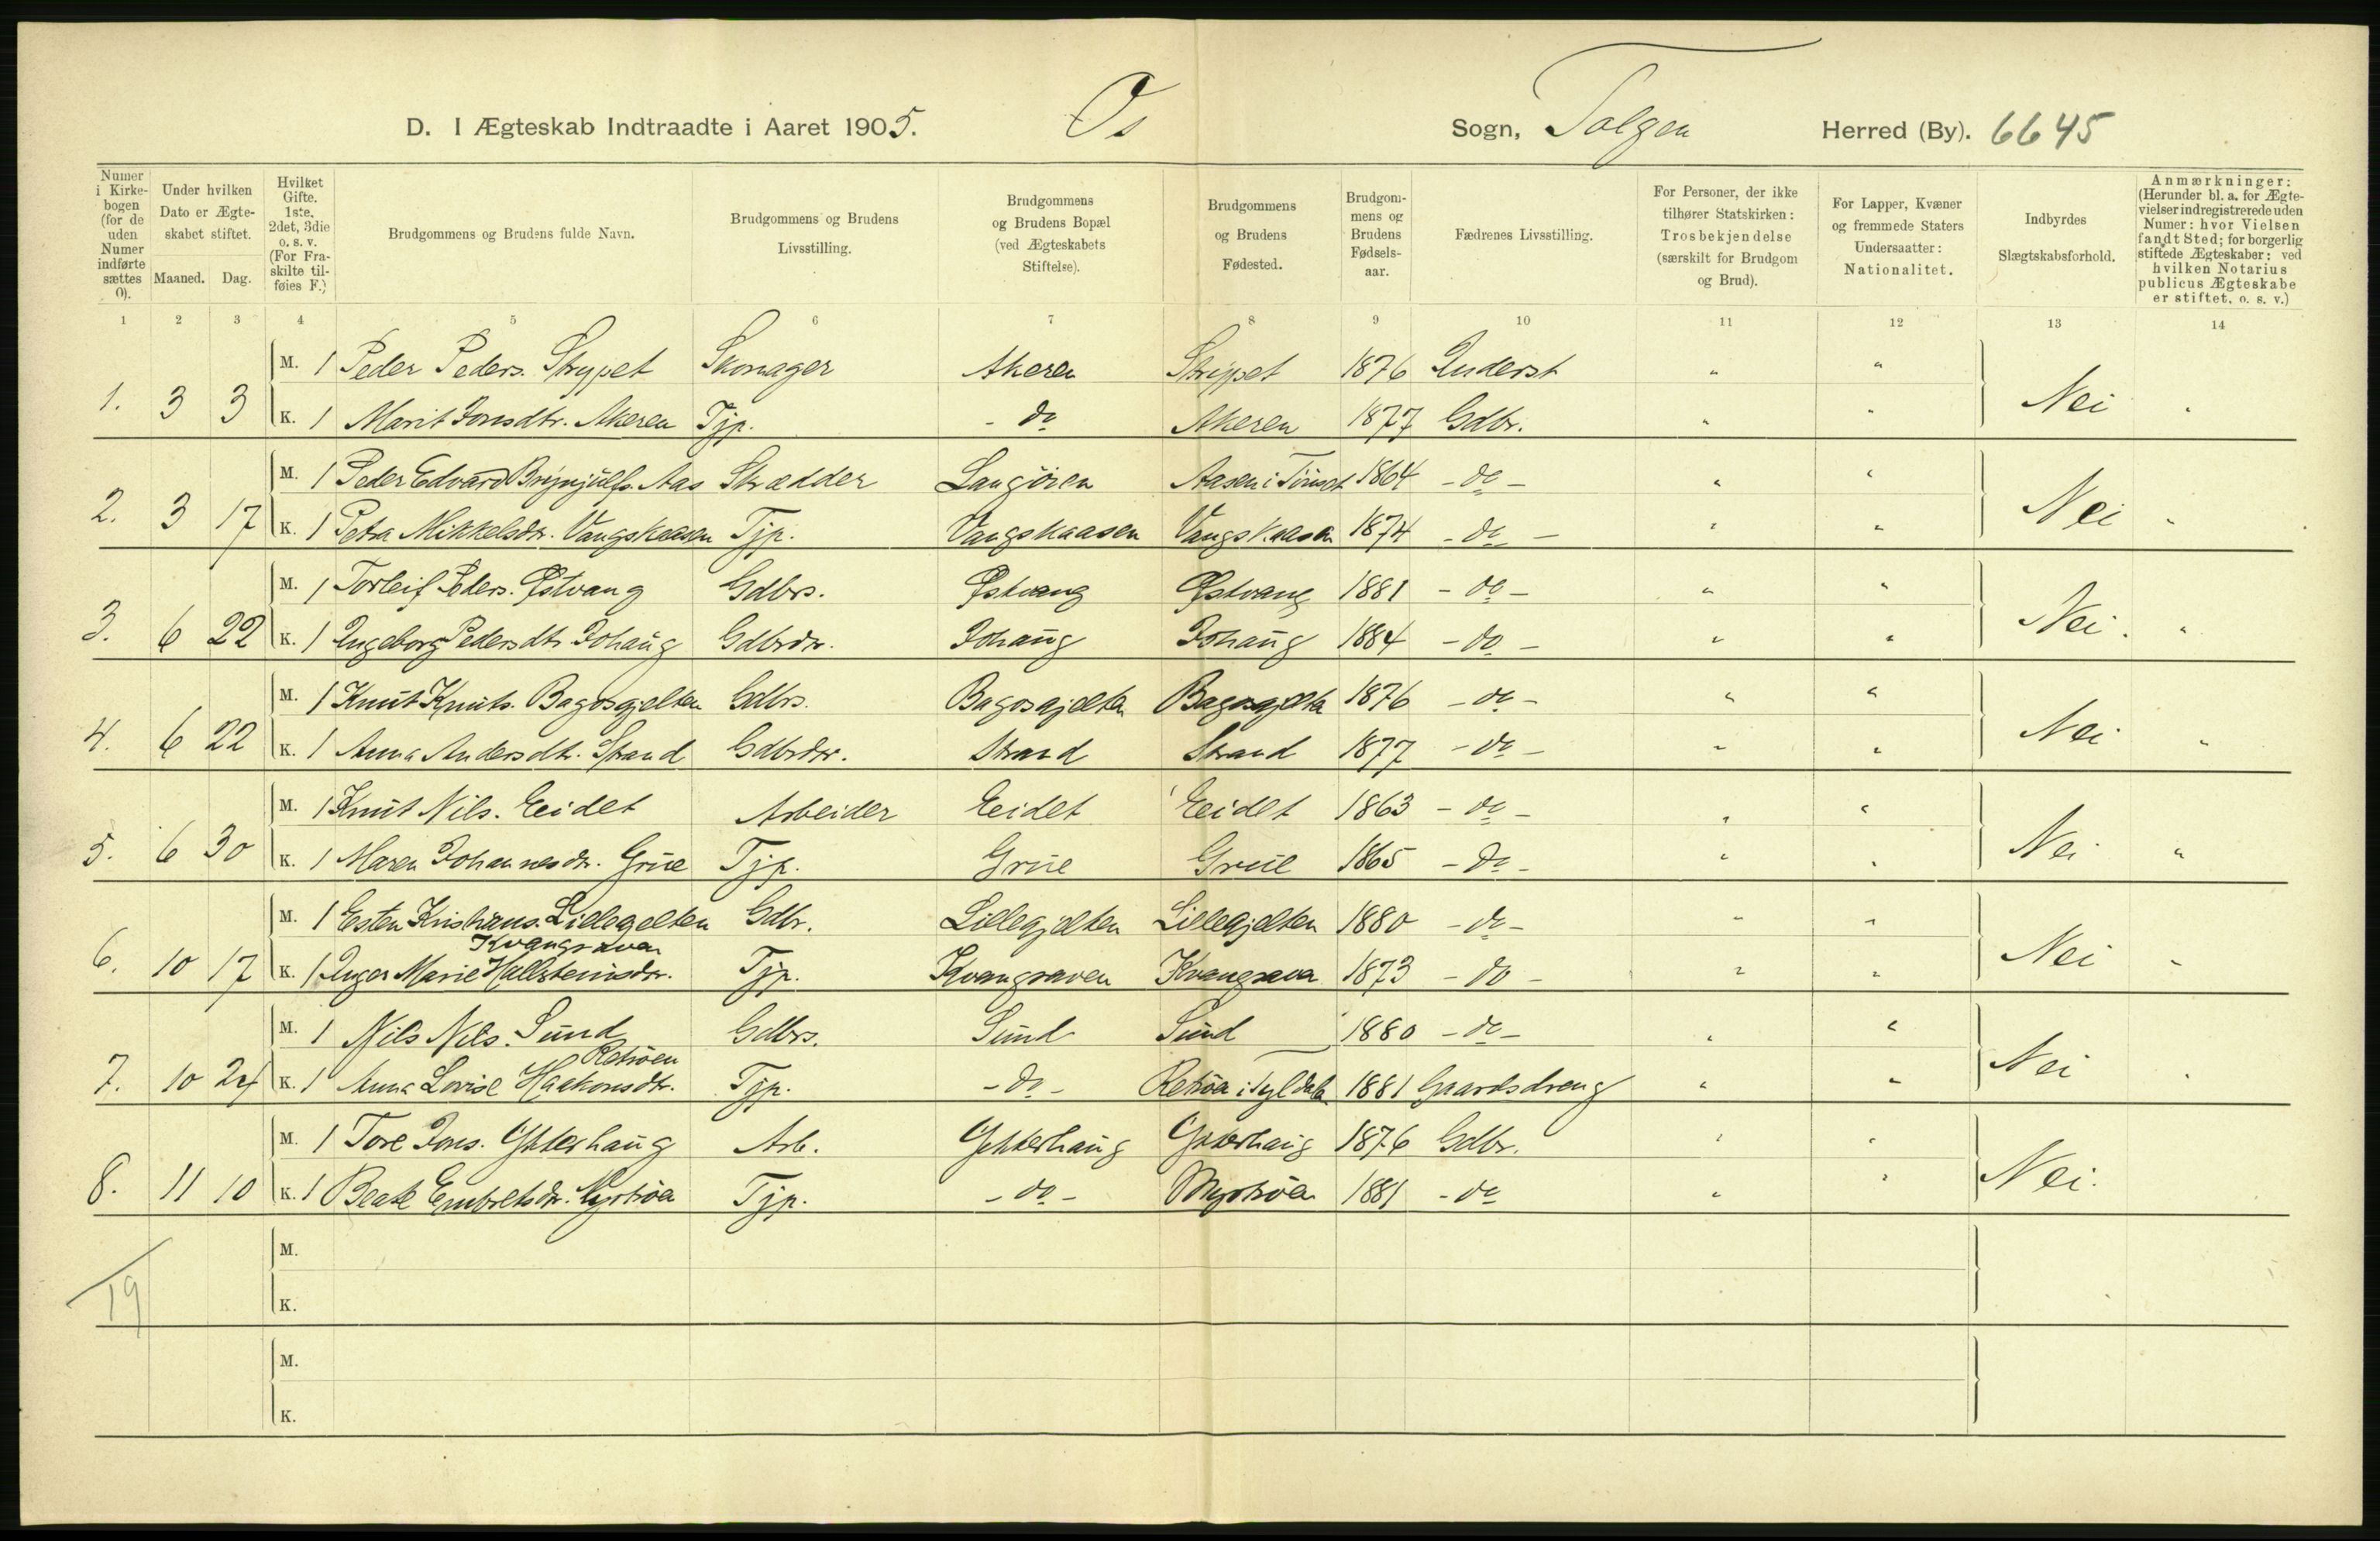 D. I Ægteskab Indtraadte i Aaret 1905. Os Sogn, Tolgen Herred (By). 6645
Numer i Kirkebogen (for de uden Numer indførte sættes 0).
Under hvilken Dato er Ægteskabet stiftet.
Maaned. Dag.
Hvilket Gifte. 1ste, 2det, 3die o. s. v. (For Fraskilte tilføies F.)
Brudgommens og Brudens fulde Navn.
Brudgommens og Brudens Livsstilling.
Brudgommens og Brudens Bopæl (ved Ægteskabets Stiftelse).
Brudgommens og Brudens Fødested.
Brudgommens og Brudens Fødselsaar.
Fædrenes Livsstilling.
For Personer, der ikke tilhører Statskirken: Trosbekjendelse (særskilt for Brudgom og Brud).
For Lapper, Kvæner og fremmede Staters Undersaatter: Nationalitet.
Indbyrdes Slægtskabsforhold.
Anmærkninger: (Herunder bl. a. for Ægtevielser indregistrerede uden Numer: hvor Vielsen fandt Sted; for borgerlig stiftede Ægteskaber: ved hvilken Notarius publicus Ægteskabe er stiftet, o. s. v.)
1 2 3 4 5 6 7 8 9 10 11 12 13 14
M. 1 Peder Peders. Strypet Skomager Akeren Strypet 1876 Inderst " "
1. 3 3 K. 1 Marit Jonsdtr. Akeren Tjp. - do Akeren 1877 Gdbr. " " Nei "
M. 1 Peder Edvard Brynjülfs. Aas Skrædder Langøien Aasen i Tönset 1864 - do - " "
2. 3 17 K. 1 Petra Mikkelsdr. Vangskaasen Tjp. Vangskaasen Vangskaasen 1874 - do - " " Nei "
M. 1 Torleif Peders. Østvang Gdbrs. Østvang Østvang 1881 - do - " "
3. 6 22 K. 1 Ingeborg Pedersdtr. Johaug Gdbrdr. Johaug Johaug 1884 - do - " " Nei. "
M. 1 Knut Knuts. Bagosgjelten Gdbrs. Bagosgjelten Bagosgjelten 1876 - do - " "
4. 6 22 K. 1 Anna Andersdtr. Strand Gdbrdtr. Strand Strand 1877 - do - " " Nei "
M. 1 Knut Nils. Eeidet Arbeider Eeidet Eeidet 1863 - do - " "
5. 6 30 K. 1 Maren Johannesdr. Grue Tjp. Grue Grue 1865 - do - " " Nei "
M. 1 Esten Kristians. Lillegjelten Gdbr. Lillegjelten Lillegjelten 1880 - do - " "
Kvangraven
6. 10 17 K. 1 Inger Marie Hallsteinsdr. Tjp. Kvangraven Kvangraven 1873 - do - " " Nei "
M. 1 Nils Nils. Sund Gdbrs. Sund Sund 1880 - do - " "
Retrøen
7. 10 24 K. 1 Anna Lovise Haakonsdtr. Tjp. - do - Retrøen i Tyldalen 1881 Gaardsdreng " " Nei "
M. 1 Tore Jons. Ytterhaug Arb. Ytterhaug Ytterhaug 1876 Gdbr. " "
8. 11 10 K. 1 Beate Embretsdr. Myrtrøa Tjp. - do - Myrtrøa 1881 - do " " Nei.
M.
19
K.
M.
K.